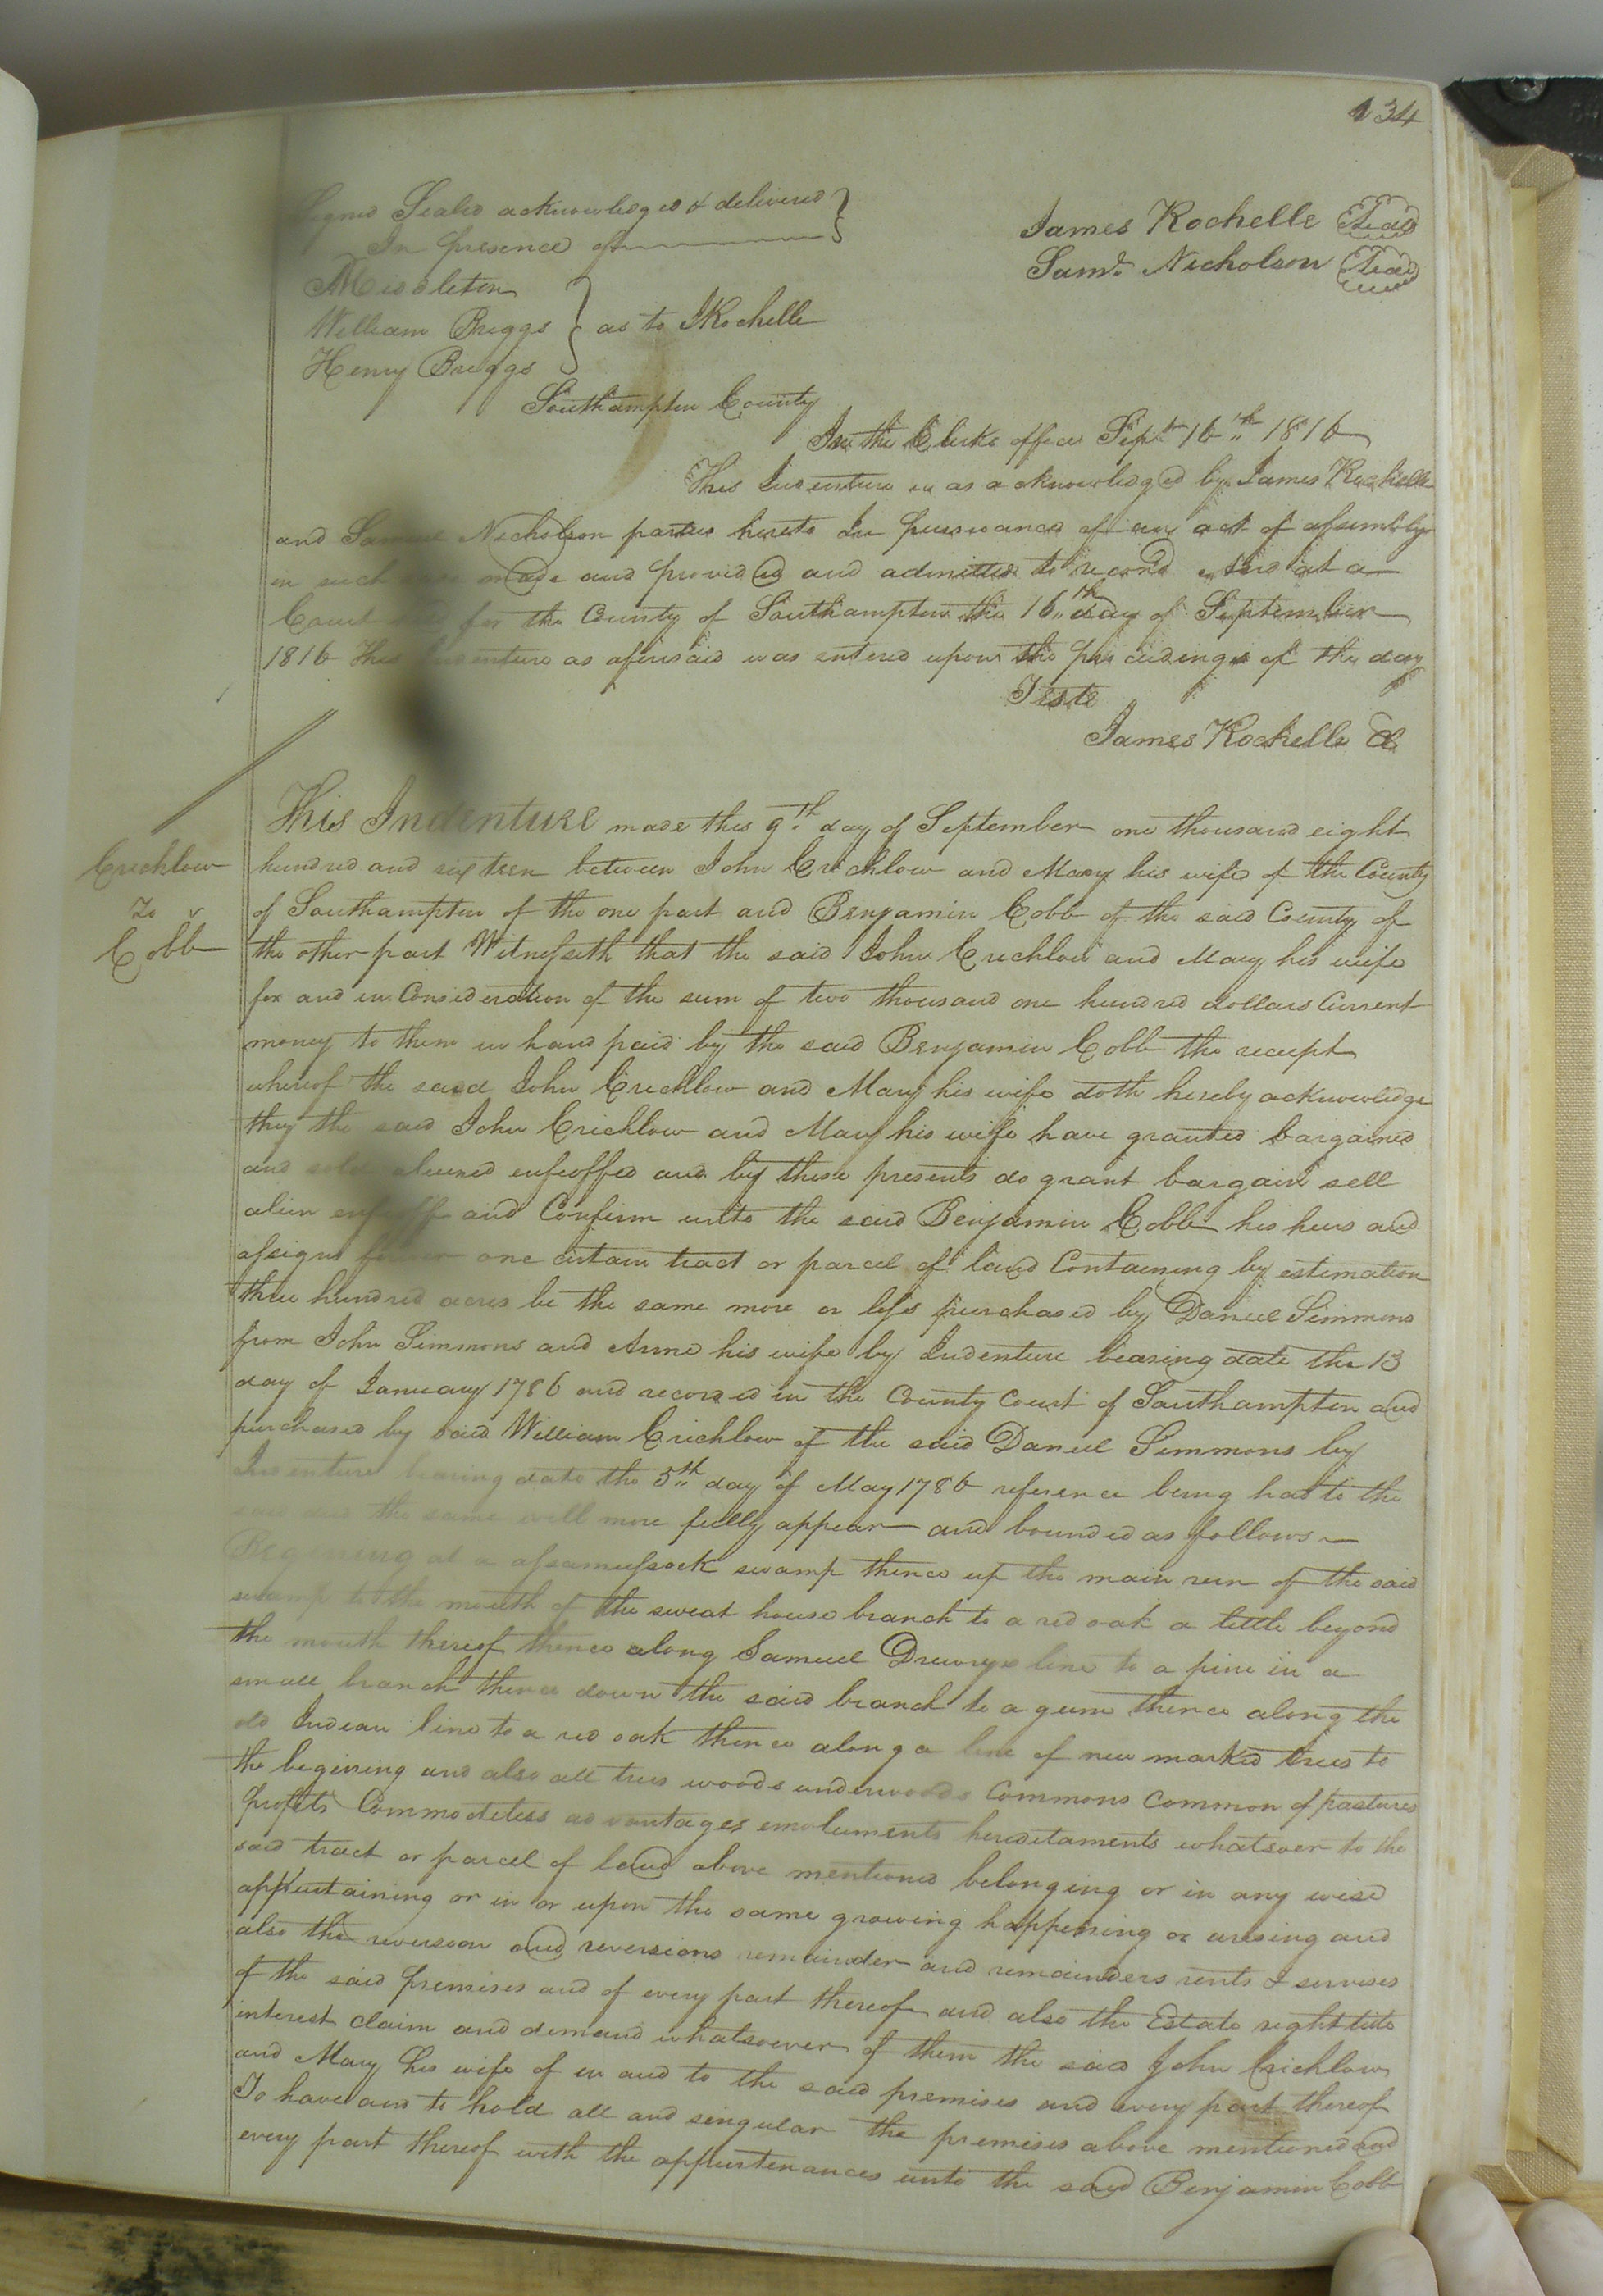 134
Signed Sealed acknowledged & delivered
In presence of
James Rochelle Seal
Saml. Nicholson Seal
Middleton
William Briggs
Henry Briggs
as to JRochelle
Southampton County
In the Clerks office Sept 16th 1816
This Indenture was acknowledged by James Rochelle
and Samuel Nicholson parties hereto In pursuance of an act of assembly
in such made and provided and admitted to record and at a
Court for the County of Southampton the 16th day of September
1816 This Indenture as aforesaid was entered upon the proceedings of the day
Teste
James Rochelle Cl
Crichlow
To
Cobb
This Indenture made this 9th day of September one thousand eight
hundred and sixteen between John Crichlow and Mary his wife of the County
of Southampton of the one part and Benjamin Cobb of the said County of
the other part Witnesseth that the said John Crichlow and Mary his wife
for and in Consideration of the sum of two thousand one hundred dollars Current
money to them in hand paid by the said Benjamin Cobb the receipt
whereof the said John Crichlow and Mary his wife doth hereby acknowledge
they the said John Crichlow and Mary his wife have granted bargained
and sold aliened enfeoffed and by these presents do grant bargain sell
alien enfeoff and Confirm unto the said Benjamin Cobb his heirs and
assigns forever one certain tract or parcel of land Containing by estimation
three hundred acres be the same more or less purchased by Daniel Simmons
from John Simmons and Anne his wife by Indenture bearing date the 13
day of January 1786 and recorded in the County Court of Southampton and
purchased by said William Crichlow of the said Daniel Simmons by
Indenture bearing date the 5th day of May 1786 reference being had to the
the same will more fully appear and bounded as follows
Begining at a assamussock swamp thence up the main run of the said
swamp to the mouth of the sweat house branch to a red oak a little beyond
the mouth thereof thence along Samuel Drewrys line to a pine in a
small branch thence down the said branch to a gum thence along the
old Indean line to a red oak thence along a line of new marked trees to
the begining and also all trees woods underwoods Commons Common of pastures
profits Commodeties advantages emoluments hereditaments whatsoer to the
said tract or parcel of land above mentioned belonging or in any wise
appurtaining or in or upon the same growing happening or arising and
also the reversion and reversions remainder and remainders rents & servises
of the said premises and of every part thereof and also the Estate right title
interest claim and demand whatsoever of them the said John Crichlow
and Mary his wife of in and to the said premises and every part thereof
To have and to hold all and singular the premises above mentioned and
every part thereof with the appurtenances unto the said Benjamin Cobb